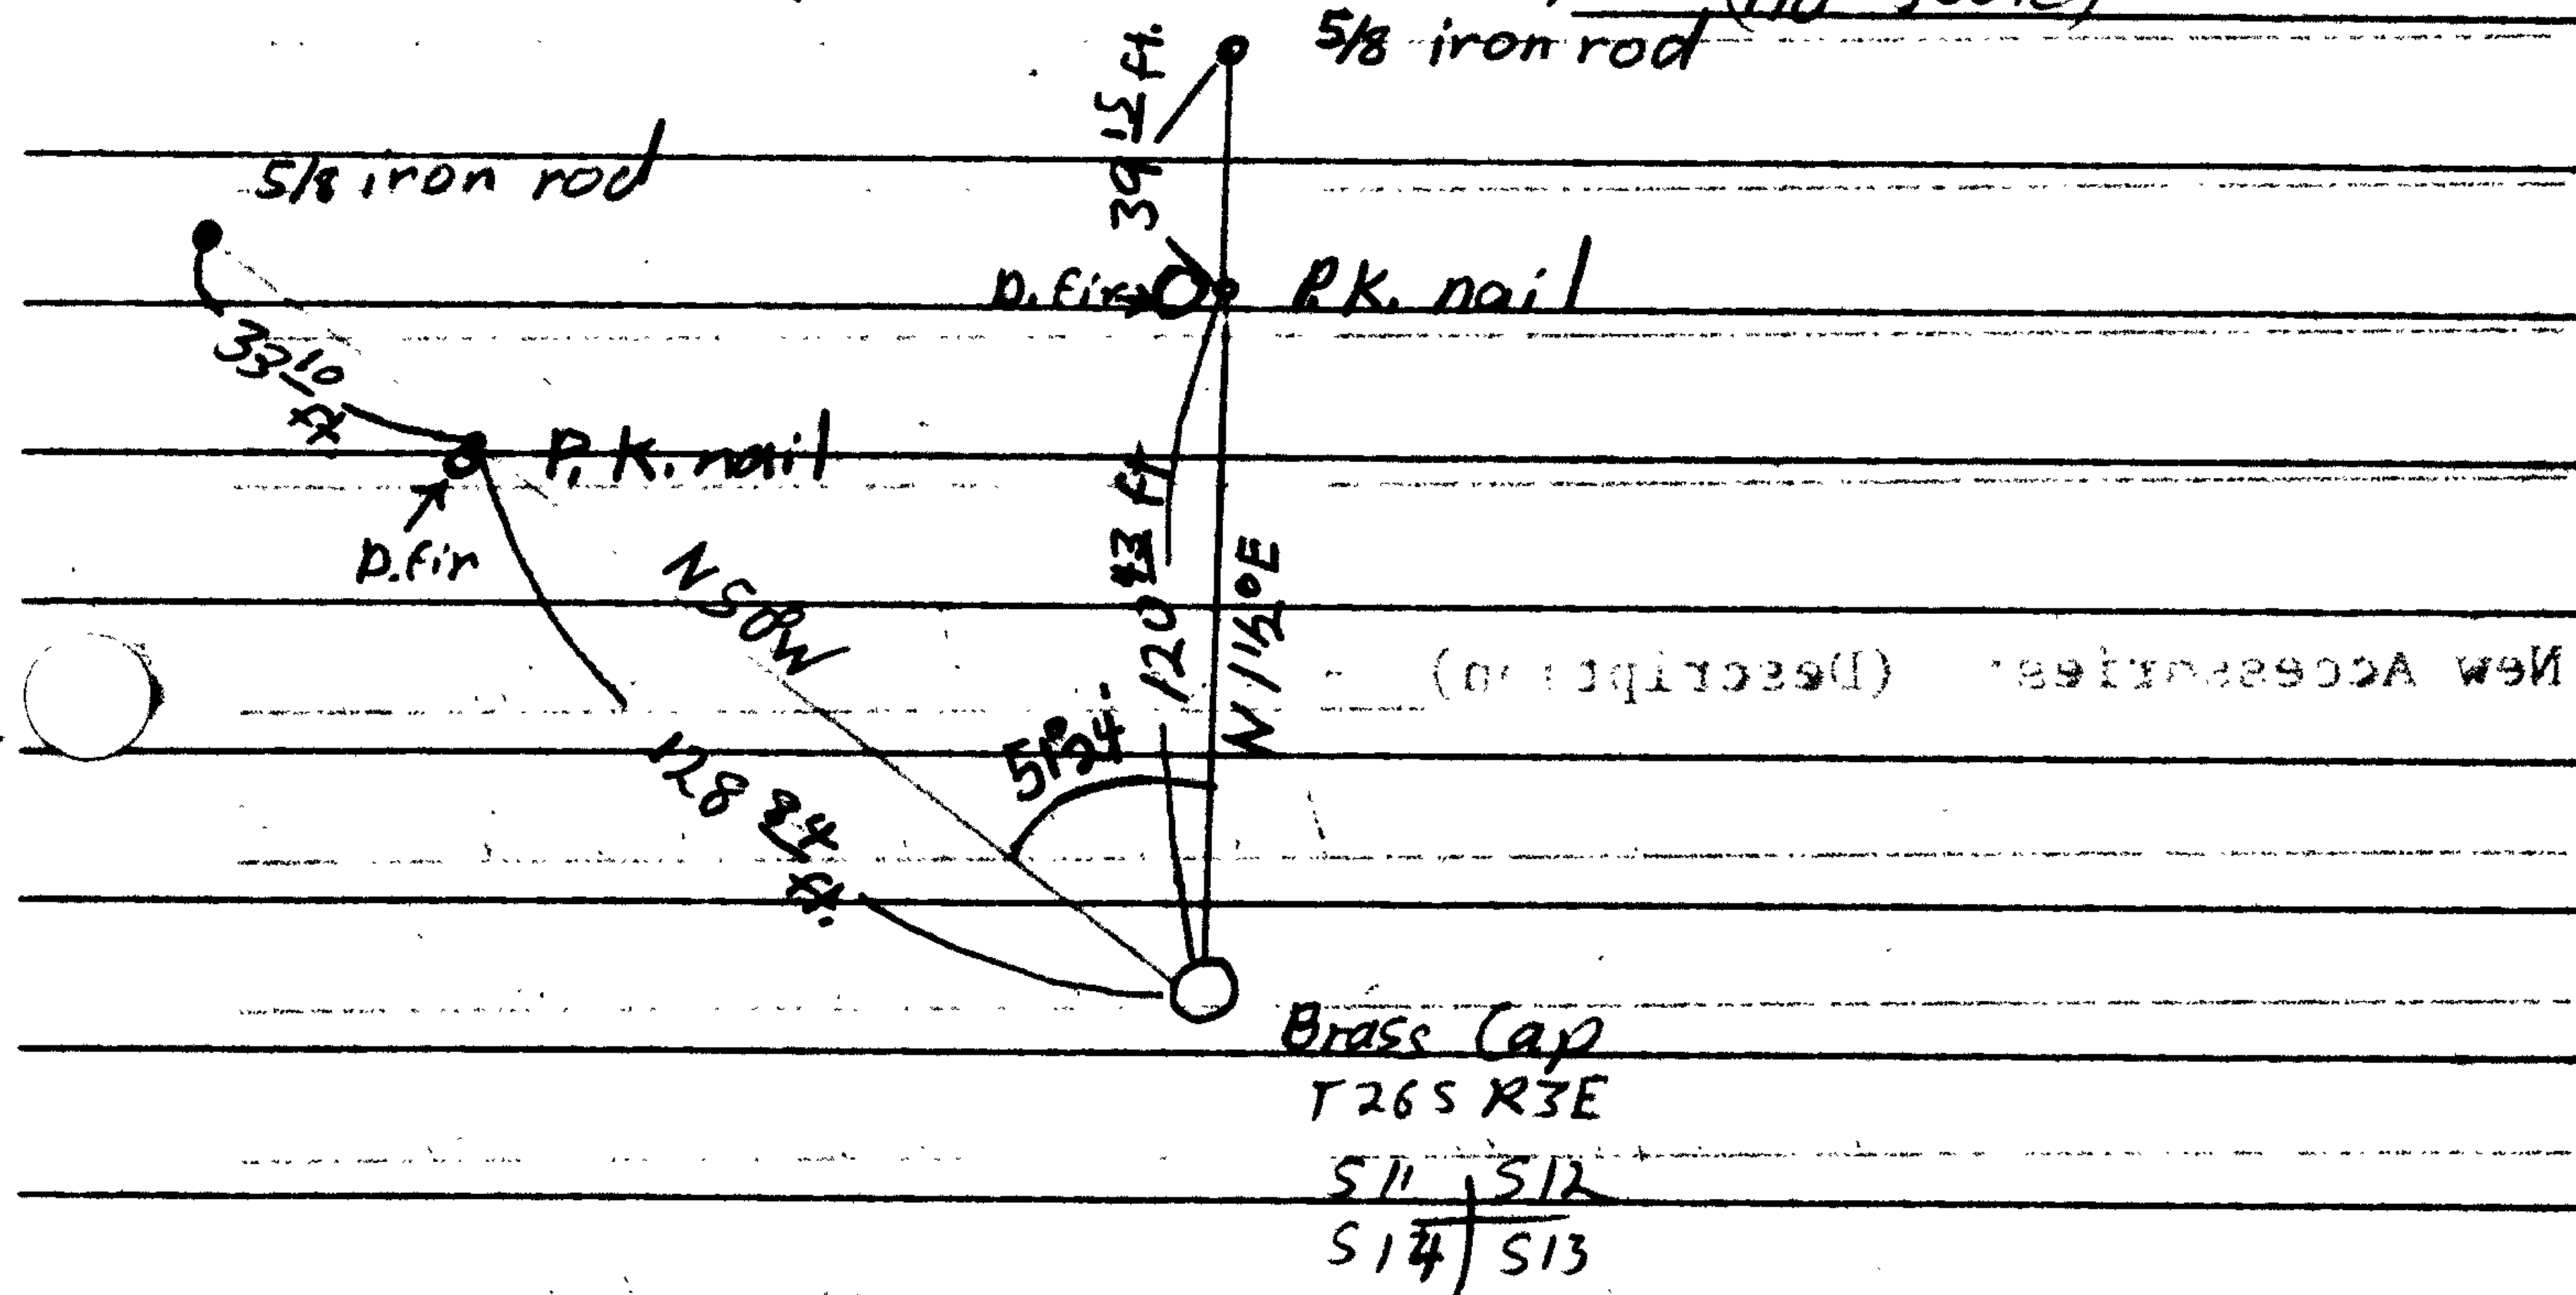 (no scale)
5/8 iron rod
39 15 ft.
5/8 iron rod
D. fir
P.K. nail
33 10 ft
P.K. nail
D. fir
N50°W
120 43 ft
N 1 1/2°E
51°24'
128 84 ft.
New Accessories (Description)
Brass Cap
T26S R3E
S11 S12
S14 S13